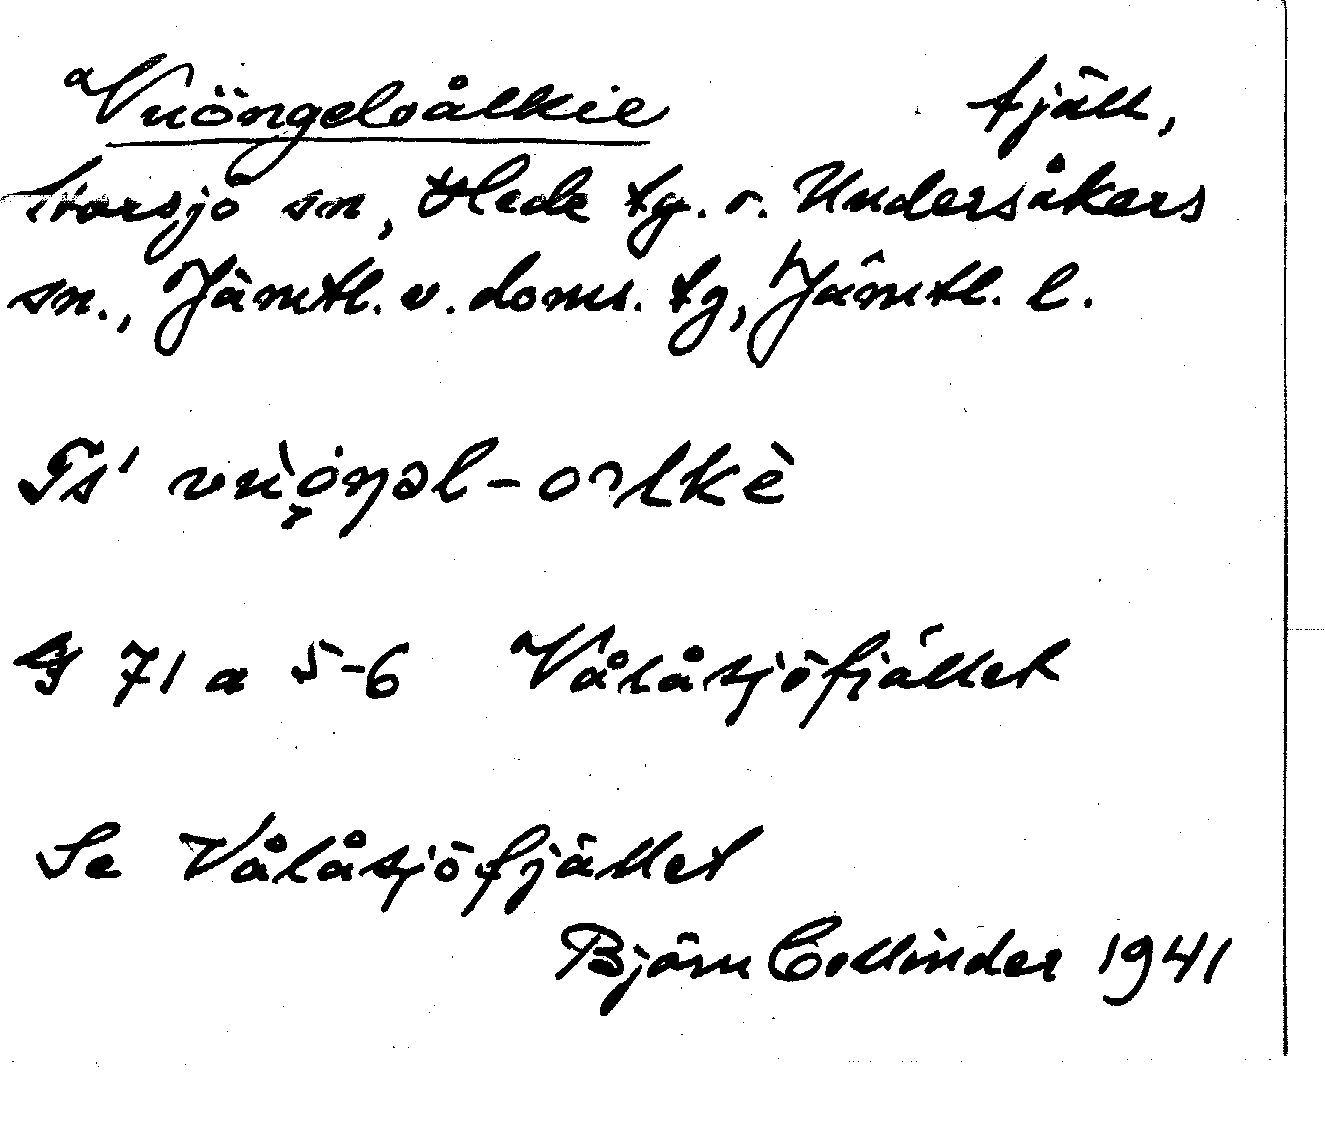 Vuöngeloålkie fjäll,
Storsjö sn, Hede tg. o. Undersåkers
sn., Jämtl. v. doms. tg, Jämtl. l.
Ts'
G 71 a 5-6 Vålåsjöfjället
Se Vålåsjöfjället
Björn Collinder 1941